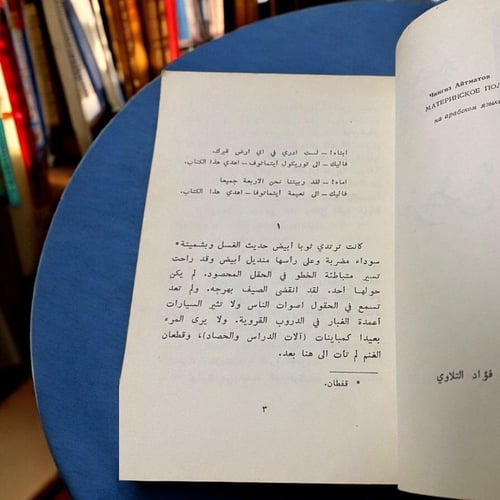 ابتاه! — لست ادري في اي ارض قبرك.
فاليك — الى توريكول ايتماتوف — اهدي هذا الكتاب.
اماه! — لقد ربيتنا نحن الاربعة جميعا
فاليك — الى نعيمة ايتماتوفا — اهدي هذا الكتاب.
١
كانت ترتدي ثوبا ابيض حديث الغسل وبشميتة*
سوداء مضربة وعلى رأسها منديل ابيض وقد راحت
تسير متباطئة الخطو في الحقل المحصود. لم يكن
حولها أحد. لقد انقضى الصيف بهرجه. ولم تعد
تسمع في الحقول اصوات الناس ولا تثير السيارات
أعمدة الغبار في الدروب القروية. ولا يرى المرء
بعيدا كمباينات (آلات الدراس والحصاد)، وقطعان
الغنم لم تأت الى هنا بعد.
* قفطان.
٣
Чингиз Айтматов
МАТЕРИНСКОЕ ПОЛ
на арабском язык
فؤاد التلاوي